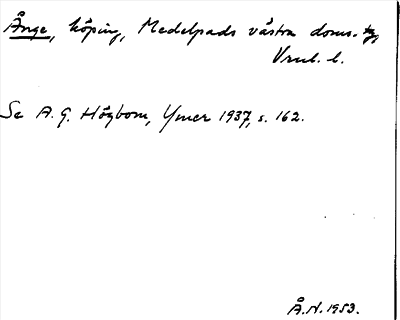 Ånge, köping, Medelpads västra doms.
l.
Se A. G. Högbom, Ymer 1937, s. 162.
Å.N. 1953.